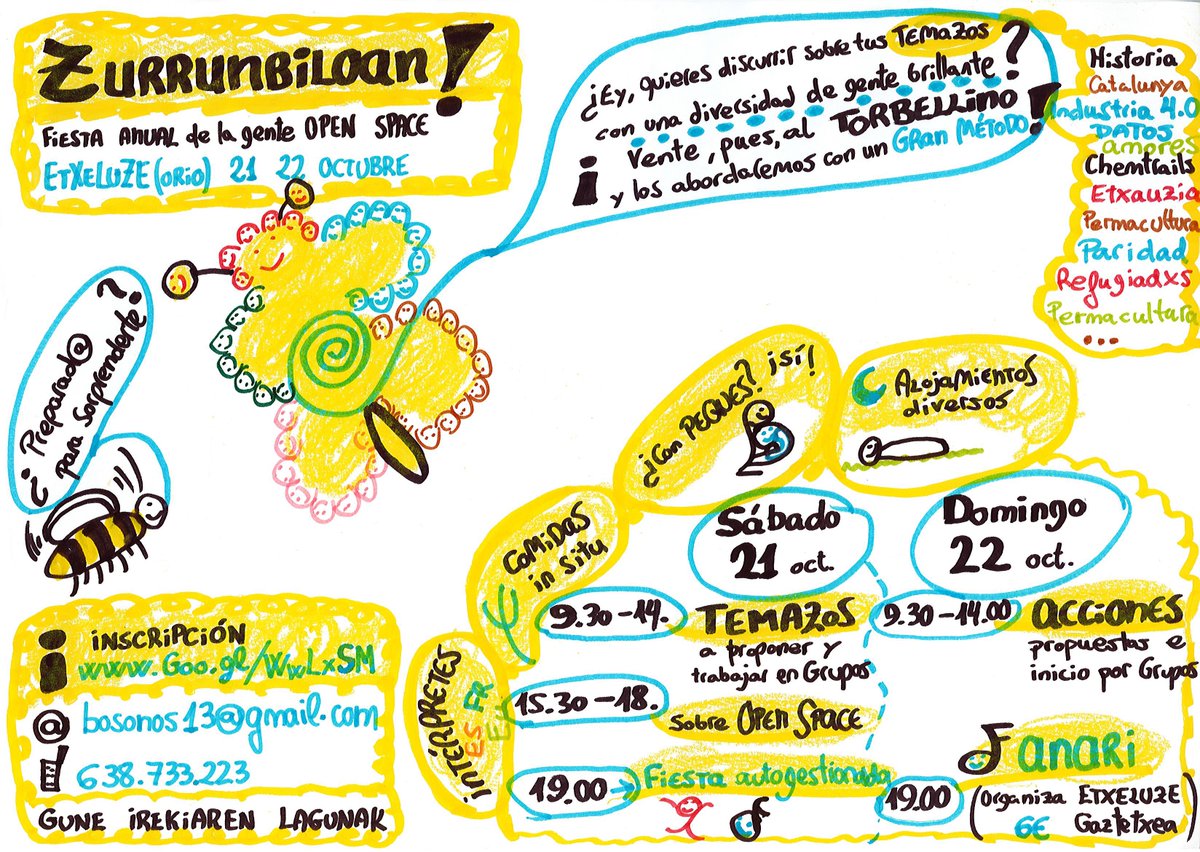 ZURRUNBILOAN!
FIESTA ANUAL de la gente OPEN SPACE
ETXELUZE (ORIO) 21 22 OCTUBRE
¿Ey, quieres discurrir sobre tus TEMAZOS
con una diversidad de gente brillante?
¡Vente, pues, al TORBELLINO
y los abordaremos con un GRAN MÉTODO!
Historia
Catalunya
Industria 4.0
DATOS
amores
Chemtrails
Etxauzia
Permacultura
Paridad
Refugiadxs
Permacultura
...
¿Preparad@
para sorprenderte?
¿Con PEQUES? ¡Sí!
Alojamientos
diversos
COMIDAS
in situ
INTÉRPRETES
ES FR
EU
Sábado
21 oct.
Domingo
22 oct.
9.30-14. TEMAZOS
a proponer y
trabajar en Grupos
15.30-18.
Sobre OPEN SPACE
19.00 → Fiesta autogestionada
9.30-14.00 ACCIONES
propuestas e
inicio por Grupos
Fanari
19.00 (Organiza ETXELUZE
GE Gaztetxea)
i INSCRIPCIÓN
www.Goo.gl/WwLxSM
@ bosonos13@gmail.com
638.733.223
GUNE IREKIAREN LAGUNAK